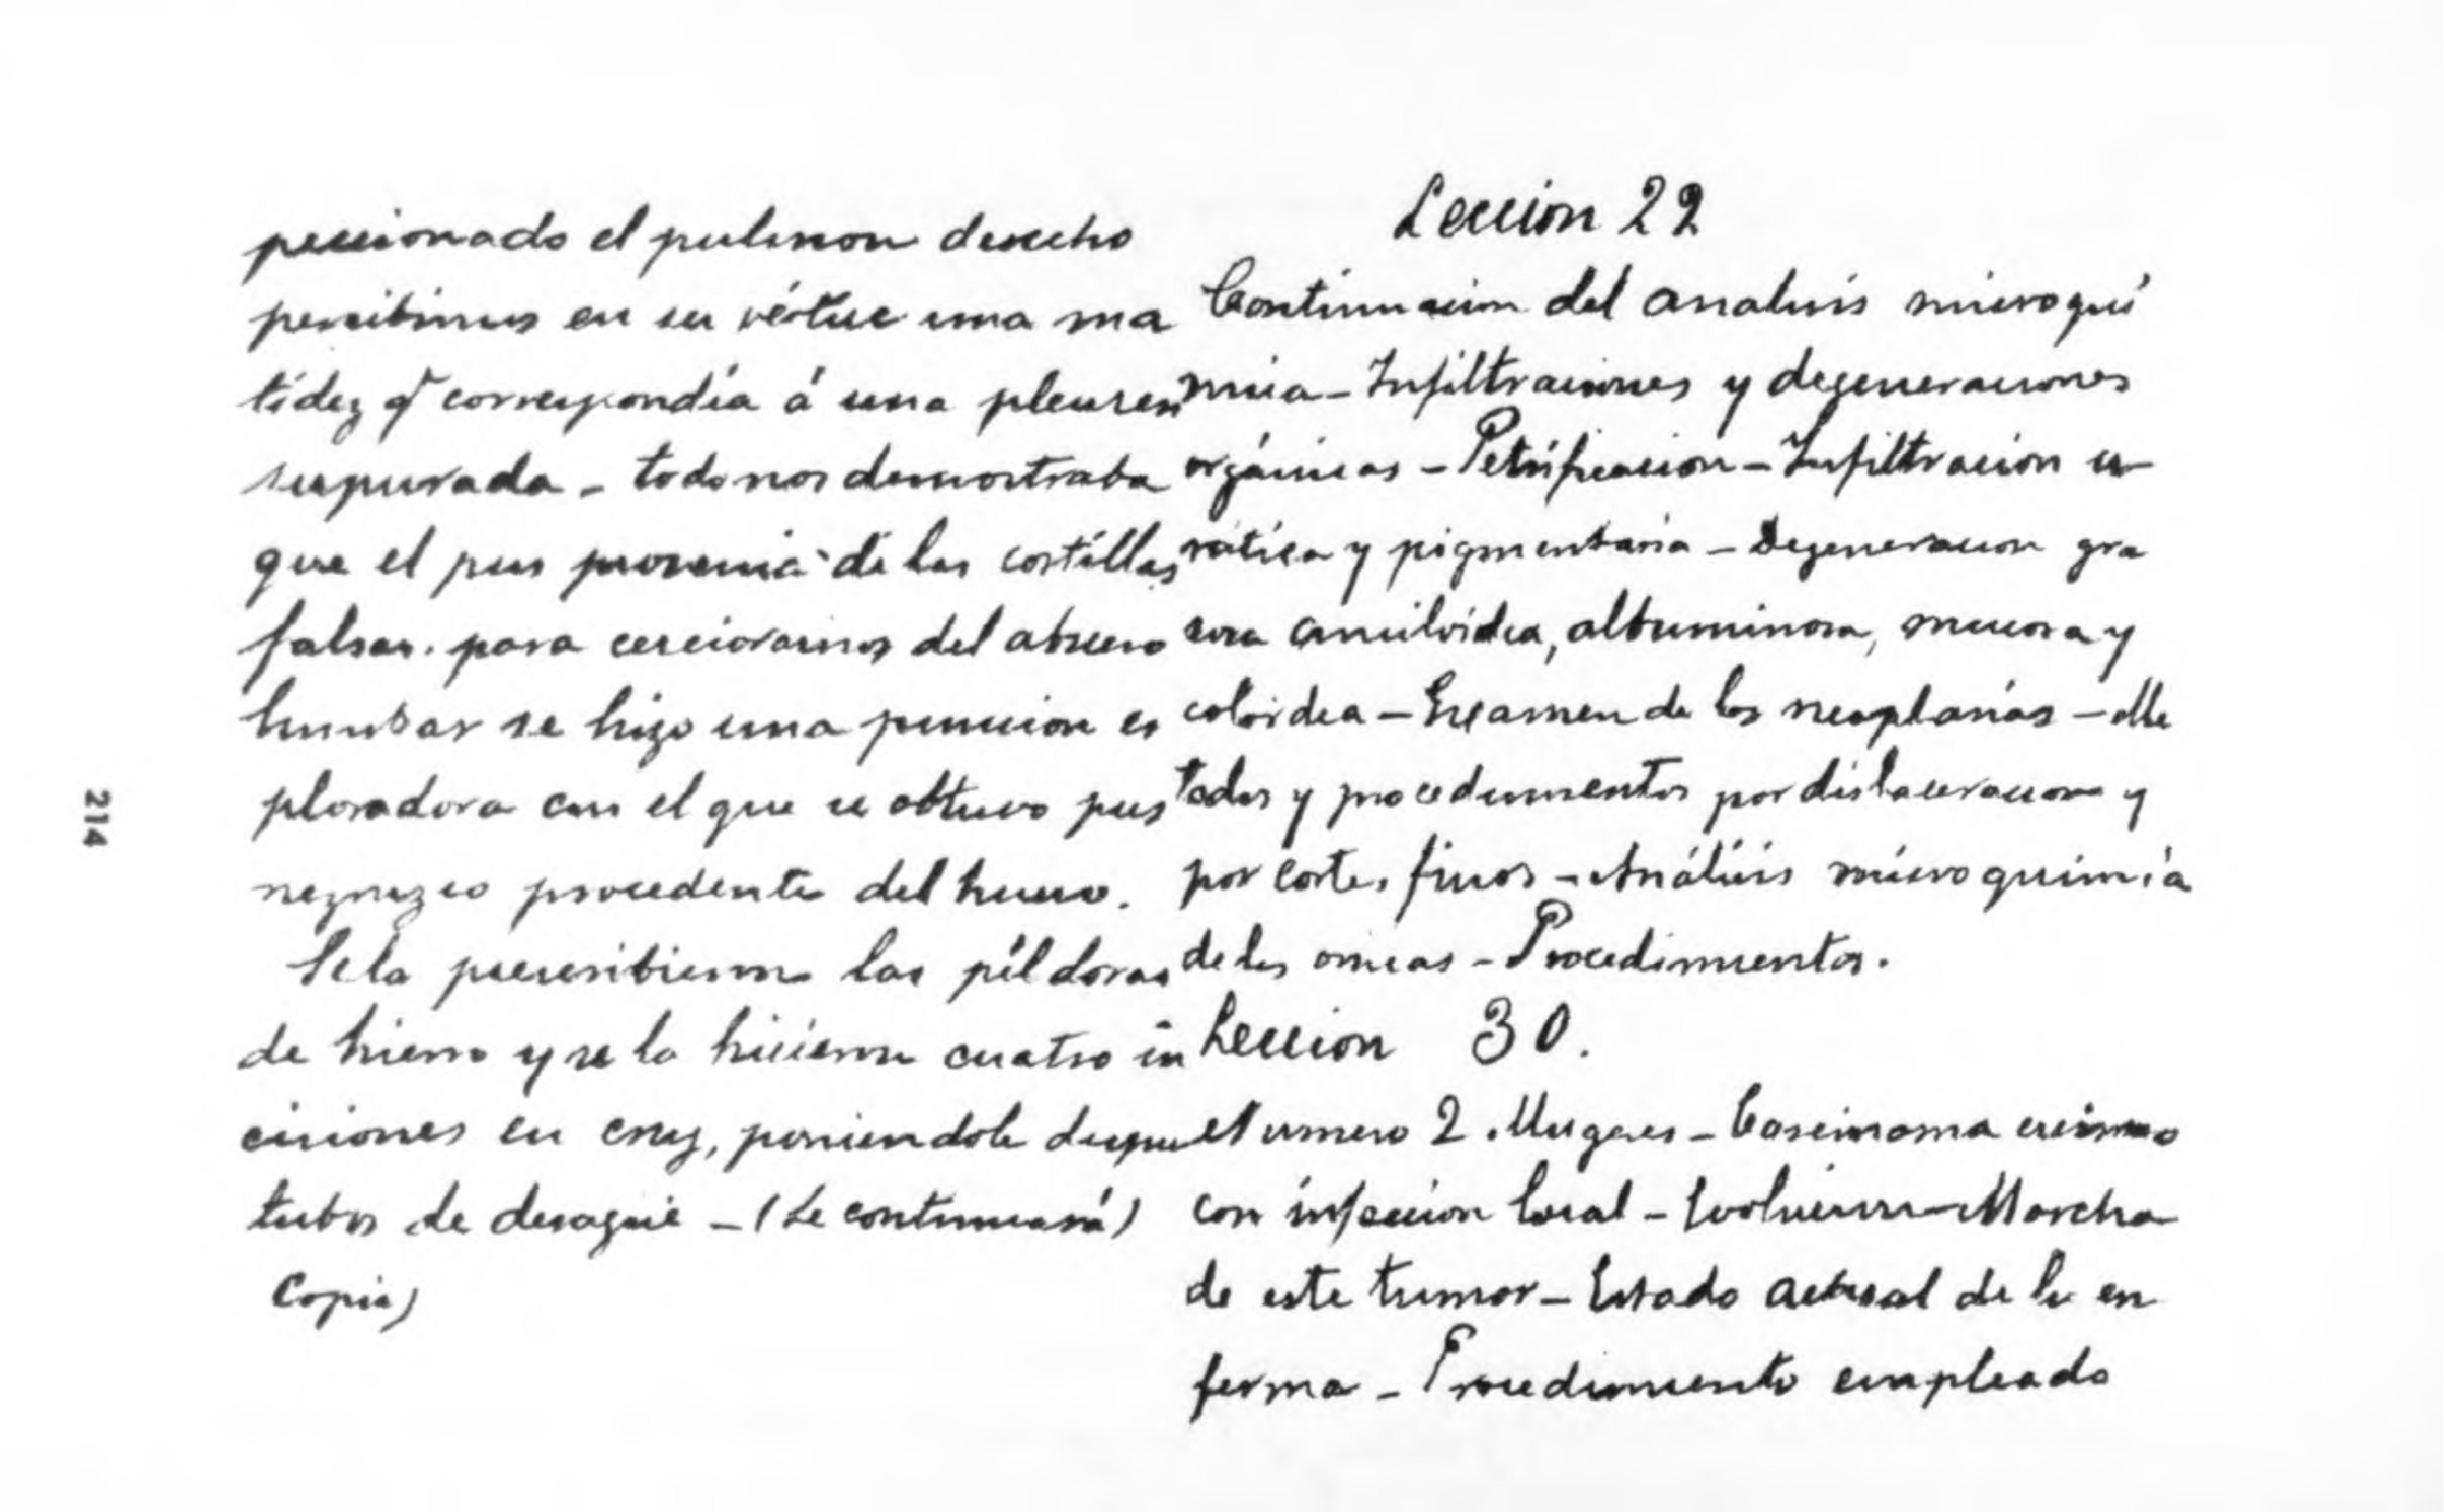 peccionado el pulmon derecho
percibimos en su vértice una ma
tidez q̃ correspondía á una pleures
supurada - todo nos demostraba
que el pus provenia de las costillas
falsas. para cerciorarnos del absceso
lumbar se hizo una puncion es
ploradora con el que se obtuvo pus
negruzco procedente del hueso.
Se la prescribieron las píldoras
de hierro y se la hicieron cuatro in
cisiones en cruz, poniendole despues
tubos de desagüe - (Se continuará)
Copia)
Leccion 22
Continuacion del analisis microquí
mica - Infiltraciones y degeneraciones
orgánicas - Petrificacion - Infiltración u
rática y pigmentaria - Degeneracion gra
sosa amiloidea, albuminosa, mucosa y
coloidea - Examen de los neoplasias - Me
todos y procedimientos por dislaceracion y
por cortes finos - Análisis microquimia
de los orinas - Procedimientos.
Leccion 30.
Numero 2. Mugeres - Carcinoma
con infeccion local - Evolucion - Marcha
de este tumor - Estado actual de la en
ferma - Procedimiento empleado
214